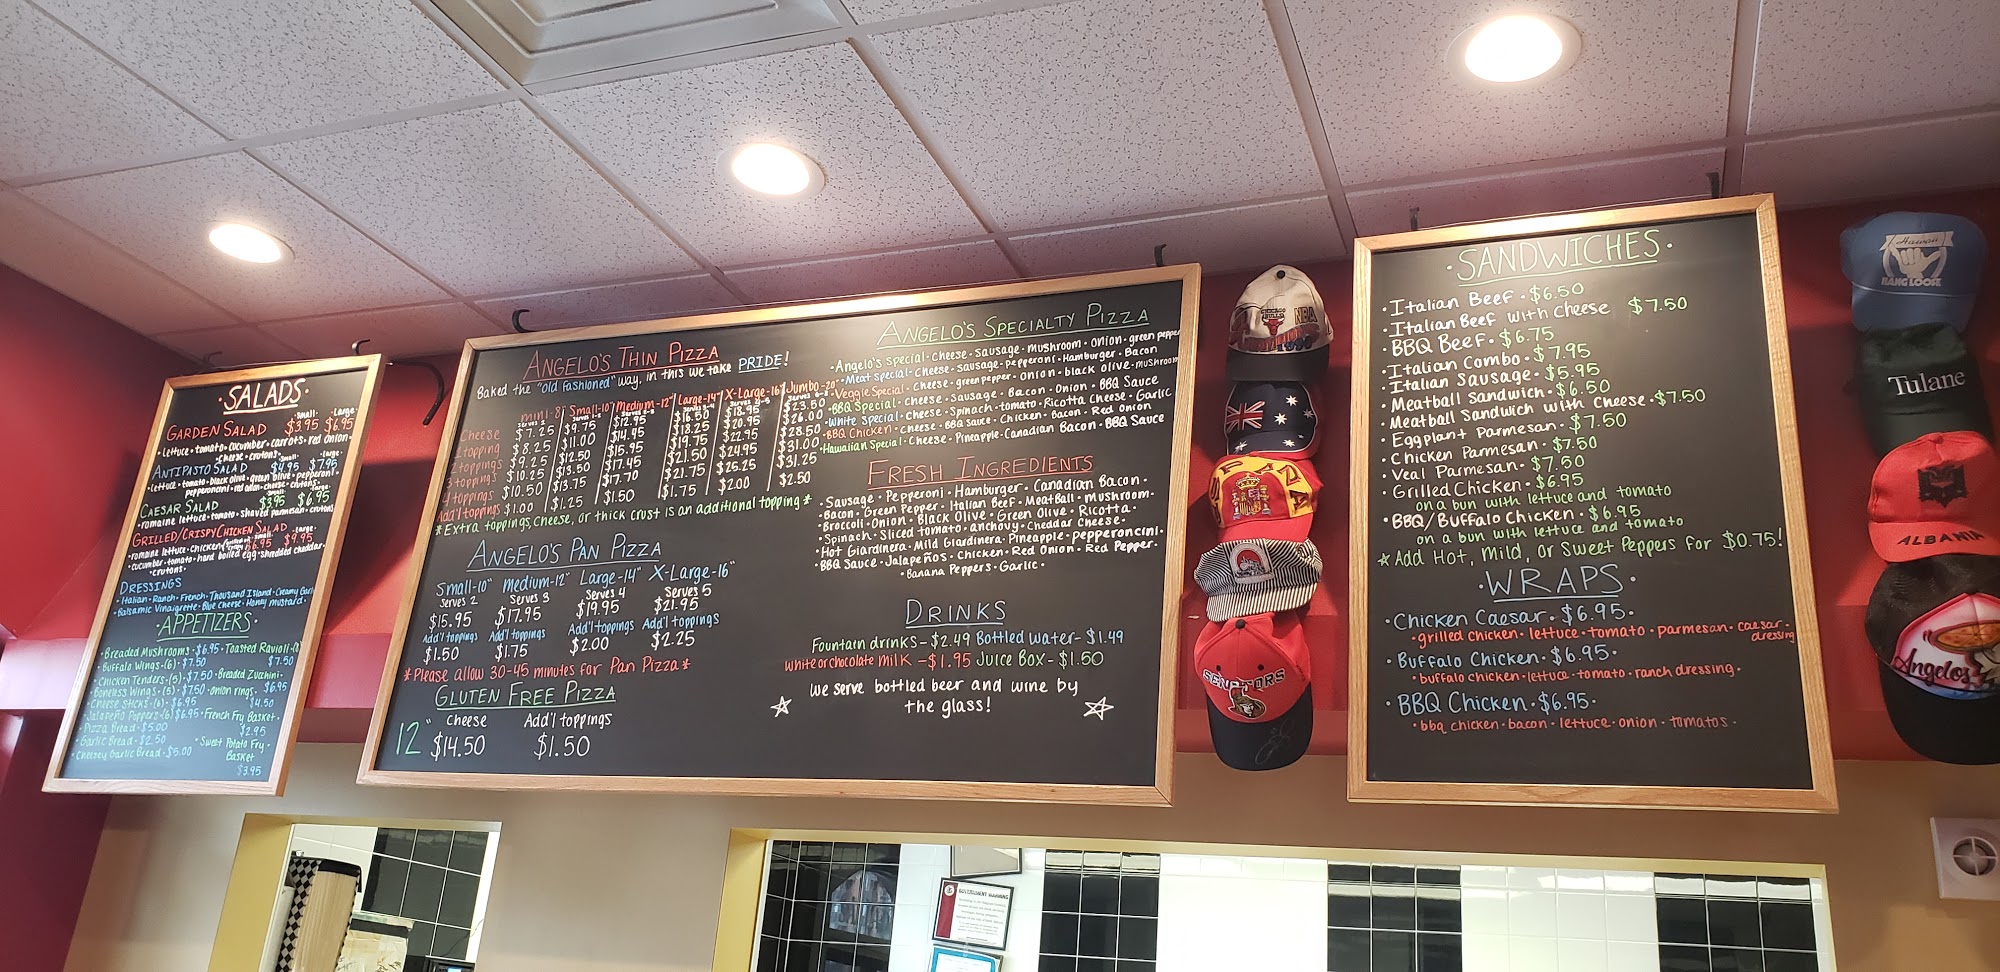 ·SALADS·
Small· Large·
GARDEN SALAD $3.95 $6.95
·lettuce·tomato·cucumber·carrots·red onion·
·cheese·crutons·
small· large·
ANTIPASTO SALAD $4.95 $7.95
·lettuce·tomato·black olive·green olive·pepperoni·
pepperoncini·red onion·cheese·crutons·
small· large·
CAESAR SALAD $3.95 $6.95
·romaine lettuce·tomato·shaved parmesan·crutons
GRILLED/CRISPY CHICKEN SALAD
small· large·
$6.95 $9.95
·romaine lettuce·chicken
·cucumber·tomato·hard boiled egg·shredded cheddar·
·crutons·
DRESSINGS
·Italian·Ranch·French·Thousand Island·Creamy Garlic
·Balsamic Vinaigrette·Blue Cheese·Honey mustard·
·APPETIZERS·
·Breaded Mushrooms·$6.95·Toasted Ravioli·
·Buffalo Wings·(6)·$7.50 $7.50
·Chicken Tenders·(5)·$7.50·Breaded Zucchini·
·Boneless Wings·(5)·$7.50·onion rings· $6.95
·Cheese sticks·(6)·$6.95 $4.50
·Jalapeño Poppers·(6)$6.95·French Fry Basket·
·Pizza Bread·$5.00 $2.95
·Garlic Bread·$2.50 ·Sweet Potato Fry·
·Cheesey Garlic Bread·$5.00 Basket
$3.95
ANGELO'S THIN PIZZA
Baked the "old fashioned" way, in this we take PRIDE!
mini-8" Small-10" Medium-12" Large-14" X-Large-16" Jumbo-20"
Cheese $7.25 $9.75 $12.95 $16.50 $18.95 $23.50
1 topping $8.25 $11.00 $14.45 $18.25 $20.95 $26.00
2 toppings $9.25 $12.50 $15.95 $19.75 $22.95 $28.50
3 toppings $10.25 $13.50 $17.45 $21.50 $24.95 $31.00
4 toppings $10.50 $13.75 $17.70 $21.75 $25.25 $31.25
Add'l toppings $1.00 $1.25 $1.50 $1.75 $2.00 $2.50
*Extra toppings, cheese, or thick crust is an additional topping*
ANGELO'S PAN PIZZA
Small-10" Medium-12" Large-14" X-Large-16"
Serves 2 Serves 3 Serves 4 Serves 5
$15.95 $17.95 $19.95 $21.95
Add'l toppings Add'l toppings Add'l toppings Add'l toppings
$1.50 $1.75 $2.00 $2.25
*Please allow 30-45 minutes for Pan Pizza*
GLUTEN FREE PIZZA
Cheese Add'l toppings
12" $14.50 $1.50
ANGELO'S SPECIALTY PIZZA
·Angelo's Special·Cheese·Sausage·mushroom·onion·green pepper
·Meat special·Cheese·sausage·pepperoni·Hamburger·Bacon
·Veggie Special·cheese·green pepper·onion·black olive·mushroom
·BBQ Special·cheese·Sausage·Bacon·Onion·BBQ Sauce
·White Special·cheese·Spinach·tomato·Ricotta Cheese·Garlic
·BBQ Chicken·Cheese·BBQ Sauce·Chicken·Bacon·Red Onion
·Hawaiian Special·Cheese·Pineapple·Canadian Bacon·BBQ Sauce
FRESH INGREDIENTS
·Sausage·Pepperoni·Hamburger·Canadian Bacon·
·Bacon·Green Pepper·Italian Beef·MeatBall·Mushroom·
·Broccoli·Onion·Black Olive·Green Olive·Ricotta·
·Spinach·Sliced Tomato·anchovy·Cheddar Cheese·
·Hot Giardinera·Mild Giardinera·Pineapple·Pepperoncini·
·BBQ Sauce·Jalapeños·Chicken·Red Onion·Red Pepper·
·Banana Peppers·Garlic·
DRINKS
Fountain drinks-$2.49 Bottled water-$1.49
White or chocolate milk-$1.95 Juice Box-$1.50
We serve bottled beer and wine by
the glass!
CHICAGO
BULLS
NBA
SENATORS
·SANDWICHES·
·Italian Beef·$6.50
·Italian Beef with Cheese $7.50
·BBQ Beef·$6.75
·Italian Combo·$7.95
·Italian Sausage·$5.95
·Meatball Sandwich·$6.50
·Meatball Sandwich with Cheese·$7.50
·Eggplant Parmesan·$7.50
·Chicken Parmesan·$7.50
·Veal Parmesan·$7.50
·Grilled Chicken·$6.95
on a bun with lettuce and tomato
·BBQ/Buffalo Chicken·$6.95
on a bun with lettuce and tomato
*Add Hot, Mild, or Sweet Peppers for $0.75!
·WRAPS·
·Chicken Caesar·$6.95·
·grilled chicken·lettuce·tomato·parmesan·caesar·
dressing
·Buffalo Chicken·$6.95·
·buffalo chicken·lettuce·tomato·ranch dressing·
·BBQ Chicken·$6.95·
·bbq chicken·bacon·lettuce·onion·tomatos·
Hawaii
HANG LOOSE
Tulane
ALBANIA
Angelos
GOVERNMENT WARNING